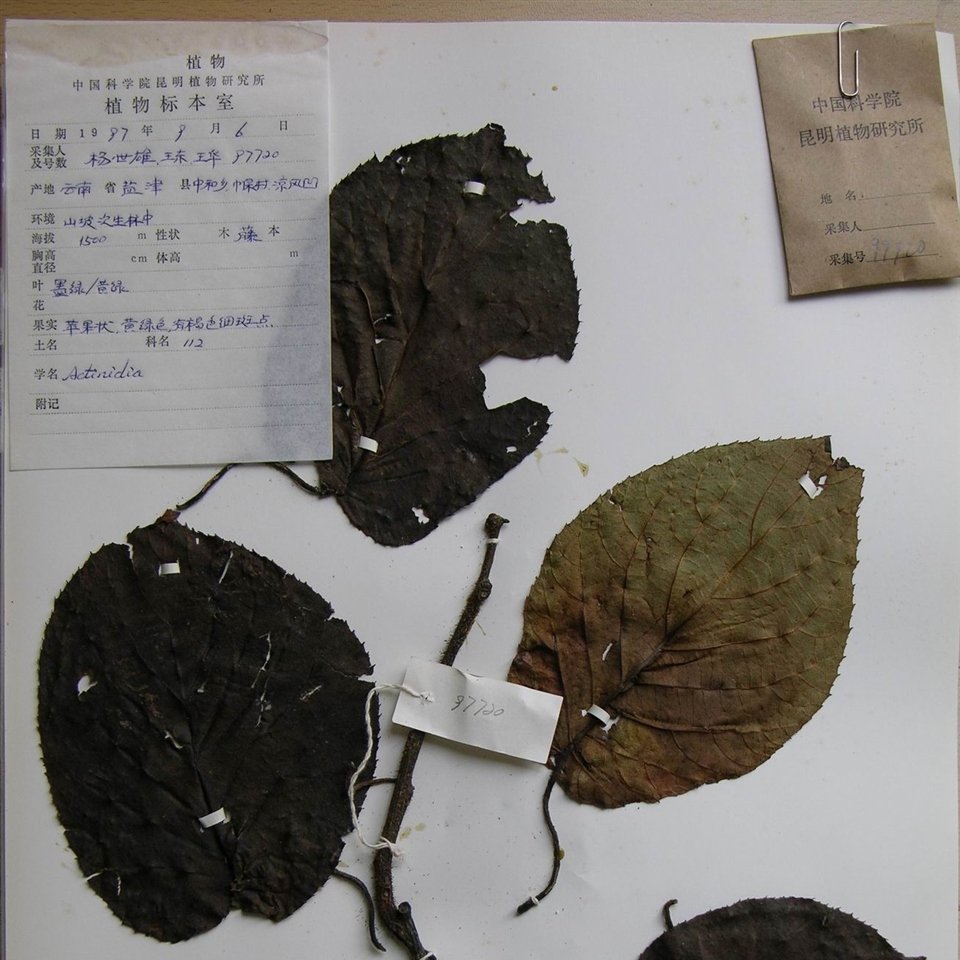 植物
中国科学院昆明植物研究所
植物标本室
日 期 1997 年 9 月 6 日
采集人
及号数 杨世雄、王东、王华 97720
产地 云南 省 盐津 县 中和乡 村 凉风凹
环境 山坡次生林中
海拔 1500 m 性状 木 藤 本
胸高
直径 cm 体高 m
叶 墨绿/黄绿
花
果实 苹果状、黄绿色,有褐色细斑点
土名 科名 112
学名 Actinidia
附记
中国科学院
昆明植物研究所
地 名:
采集人
采集号 97720
97720